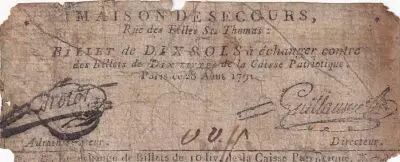 MAISON DE SECOURS,
Rue des Filles St. Thomas:
BILLET de DIX SOLS à échanger contre
des Billets de DIX LIVRES de la Caisse Patriotique.
Paris ce 26 1791.
Guillaume
Administrateur. Directeur.
échange de Billets de 10 liv. de la Caisse